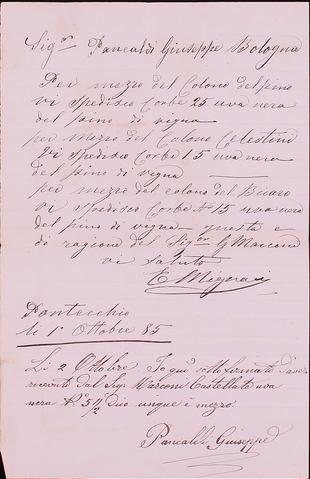 Sig.or Pancaldi Giuseppe Bologna
Per mezzo del Colono del pino
vi spedisco Corbe 25 uva nera
del pino di vigna
per mezzo del Colono Celestini
vi spedisco Corbe 15 uva nera
del pino di vigna
per mezzo del colono del Buaro
vi spedisco Corbe N. 15 uva nera
del pino di vigna questa e
di ragione del Sig.or G Marconi
vi saluto
E Mignani
Pontecchio
li 1° Ottobre 85
Li 2 Ottobre Io qui sotto firmato d'aver
ricevuto dal Sig. Marconi Castellate uva
nera N.° 5 1/2 Dico cinque e mezzo
Pancaldi Giuseppe